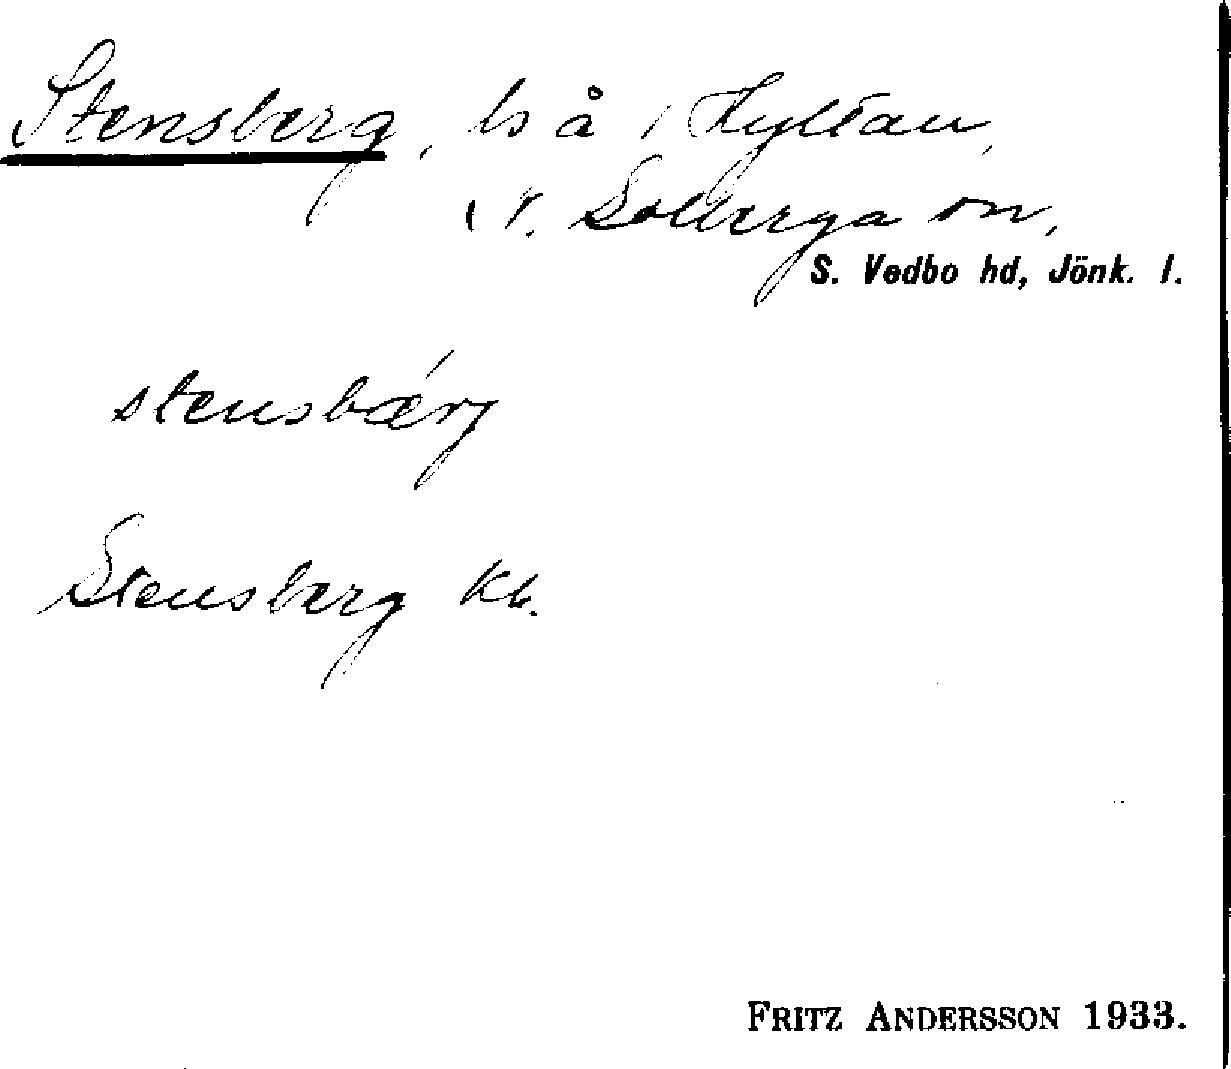 Stensberg, ls å Hyltan,
N. Solberga sn,
S. Vedbo hd, Jönk. l.
stensbǽrj
Stensberg Kb.
FRITZ ANDERSSON 1933.